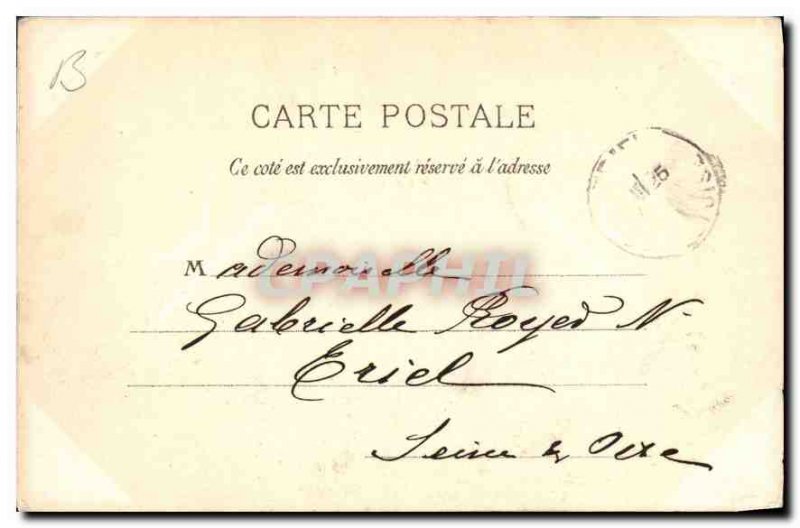 B
CARTE POSTALE
Ce coté est exclusivement réservé à l'adresse
25
Mademoiselle
CPAPHIL
Gabrielle Royed N.
Eriel
Seine & Oise